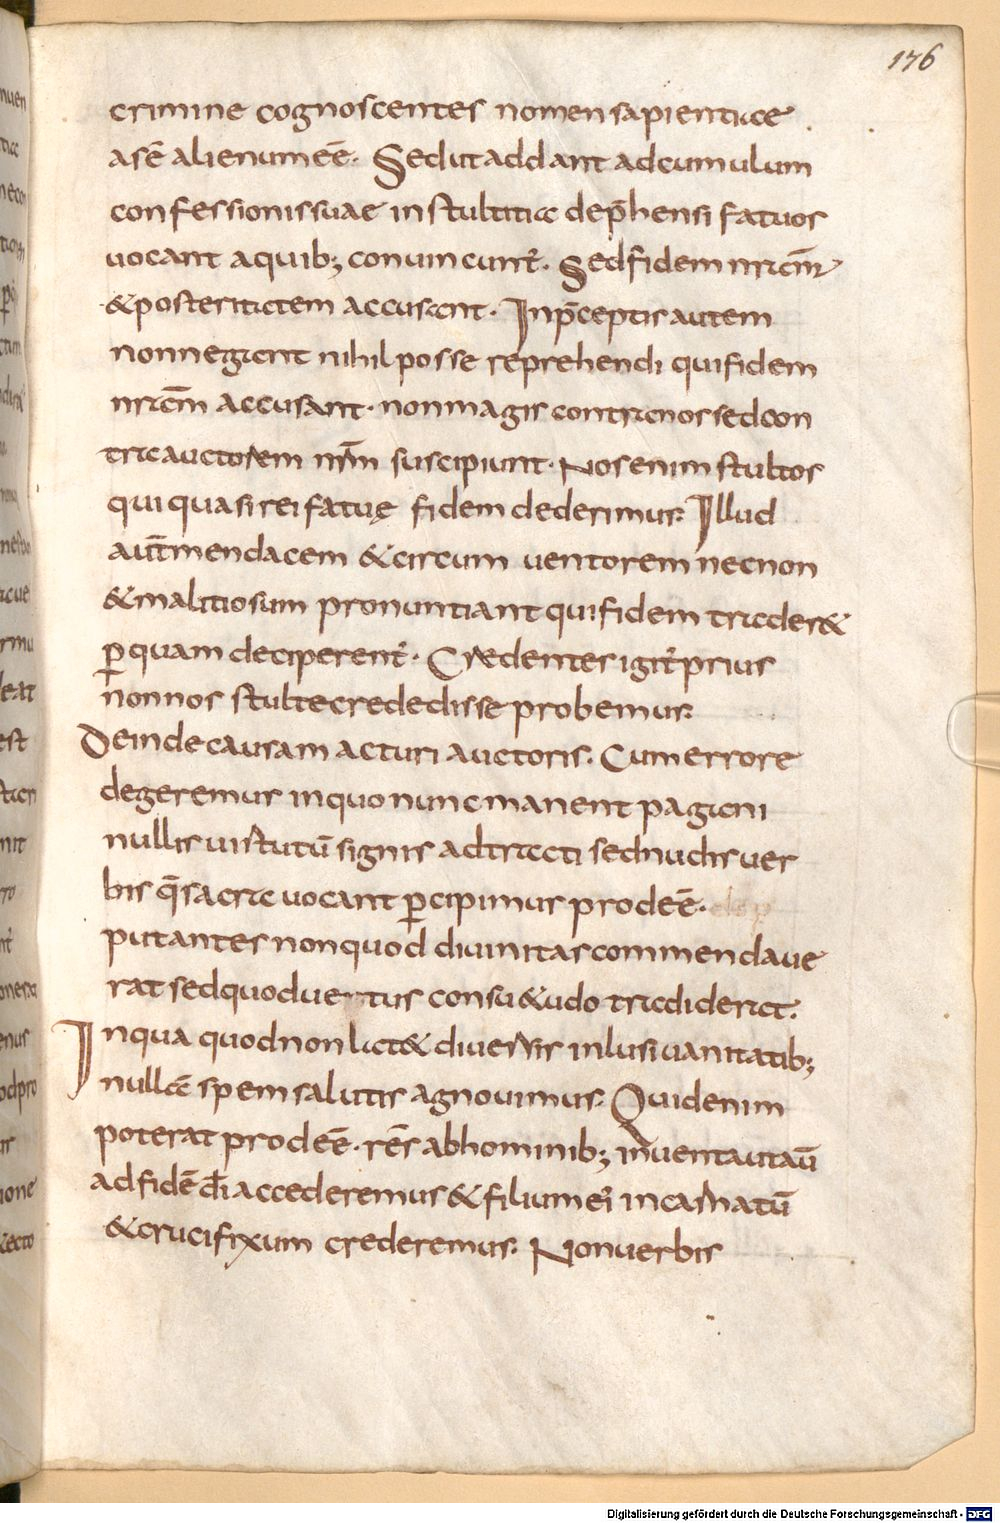 176
crimine cognoscentes nomen sapientiae
a sē alienum eē. Sed ut addant ad cumulum
confessionis suae in stultitia dep̄hensi fatuos
uocant a quib; conuincunt᷑. Sed fidem nr̄am
& posteritatem accusant. In p̄ceptis autem
non negant nihil posse reprehendi qui fidem
nr̄am accusant. non magis contra nos sed con
tra auctorem nr̄m suscipiunt. Nos enim stultos
qui quasi rei fatuę fidem dederimus. Illud
aut̄ mendacem & circumuentorem necnon
& malitiosum pronuntiant qui fidem trader&
ꝑ quam deciperent᷑. Credentes igit᷑ prius
non nos stulte credidisse probemus.
Deinde causam acturi auctoris. Cum errore
degeremus in quo nunc manent pagani
nullis uistutū signis adtracti sed nudis uer
bis q̄ sacra uocant ꝑcipimus prodeē.
putantes non quod diuinitas commendaue
rat sed quod uetus consu&udo tradiderat.
In qua quod non lat& diuersis inlusi uanitatib;
nullā spem salutis agnouimus. Quid enim
poterat prodeē. rēs ab hominib; inuenta ut aū
ad fidē dī accederemus & filium ei᷑ incarnatū
& crucifixum crederemus. Non uerbis
Digitalisierung gefördert durch die Deutsche Forschungsgemeinschaft - DFG